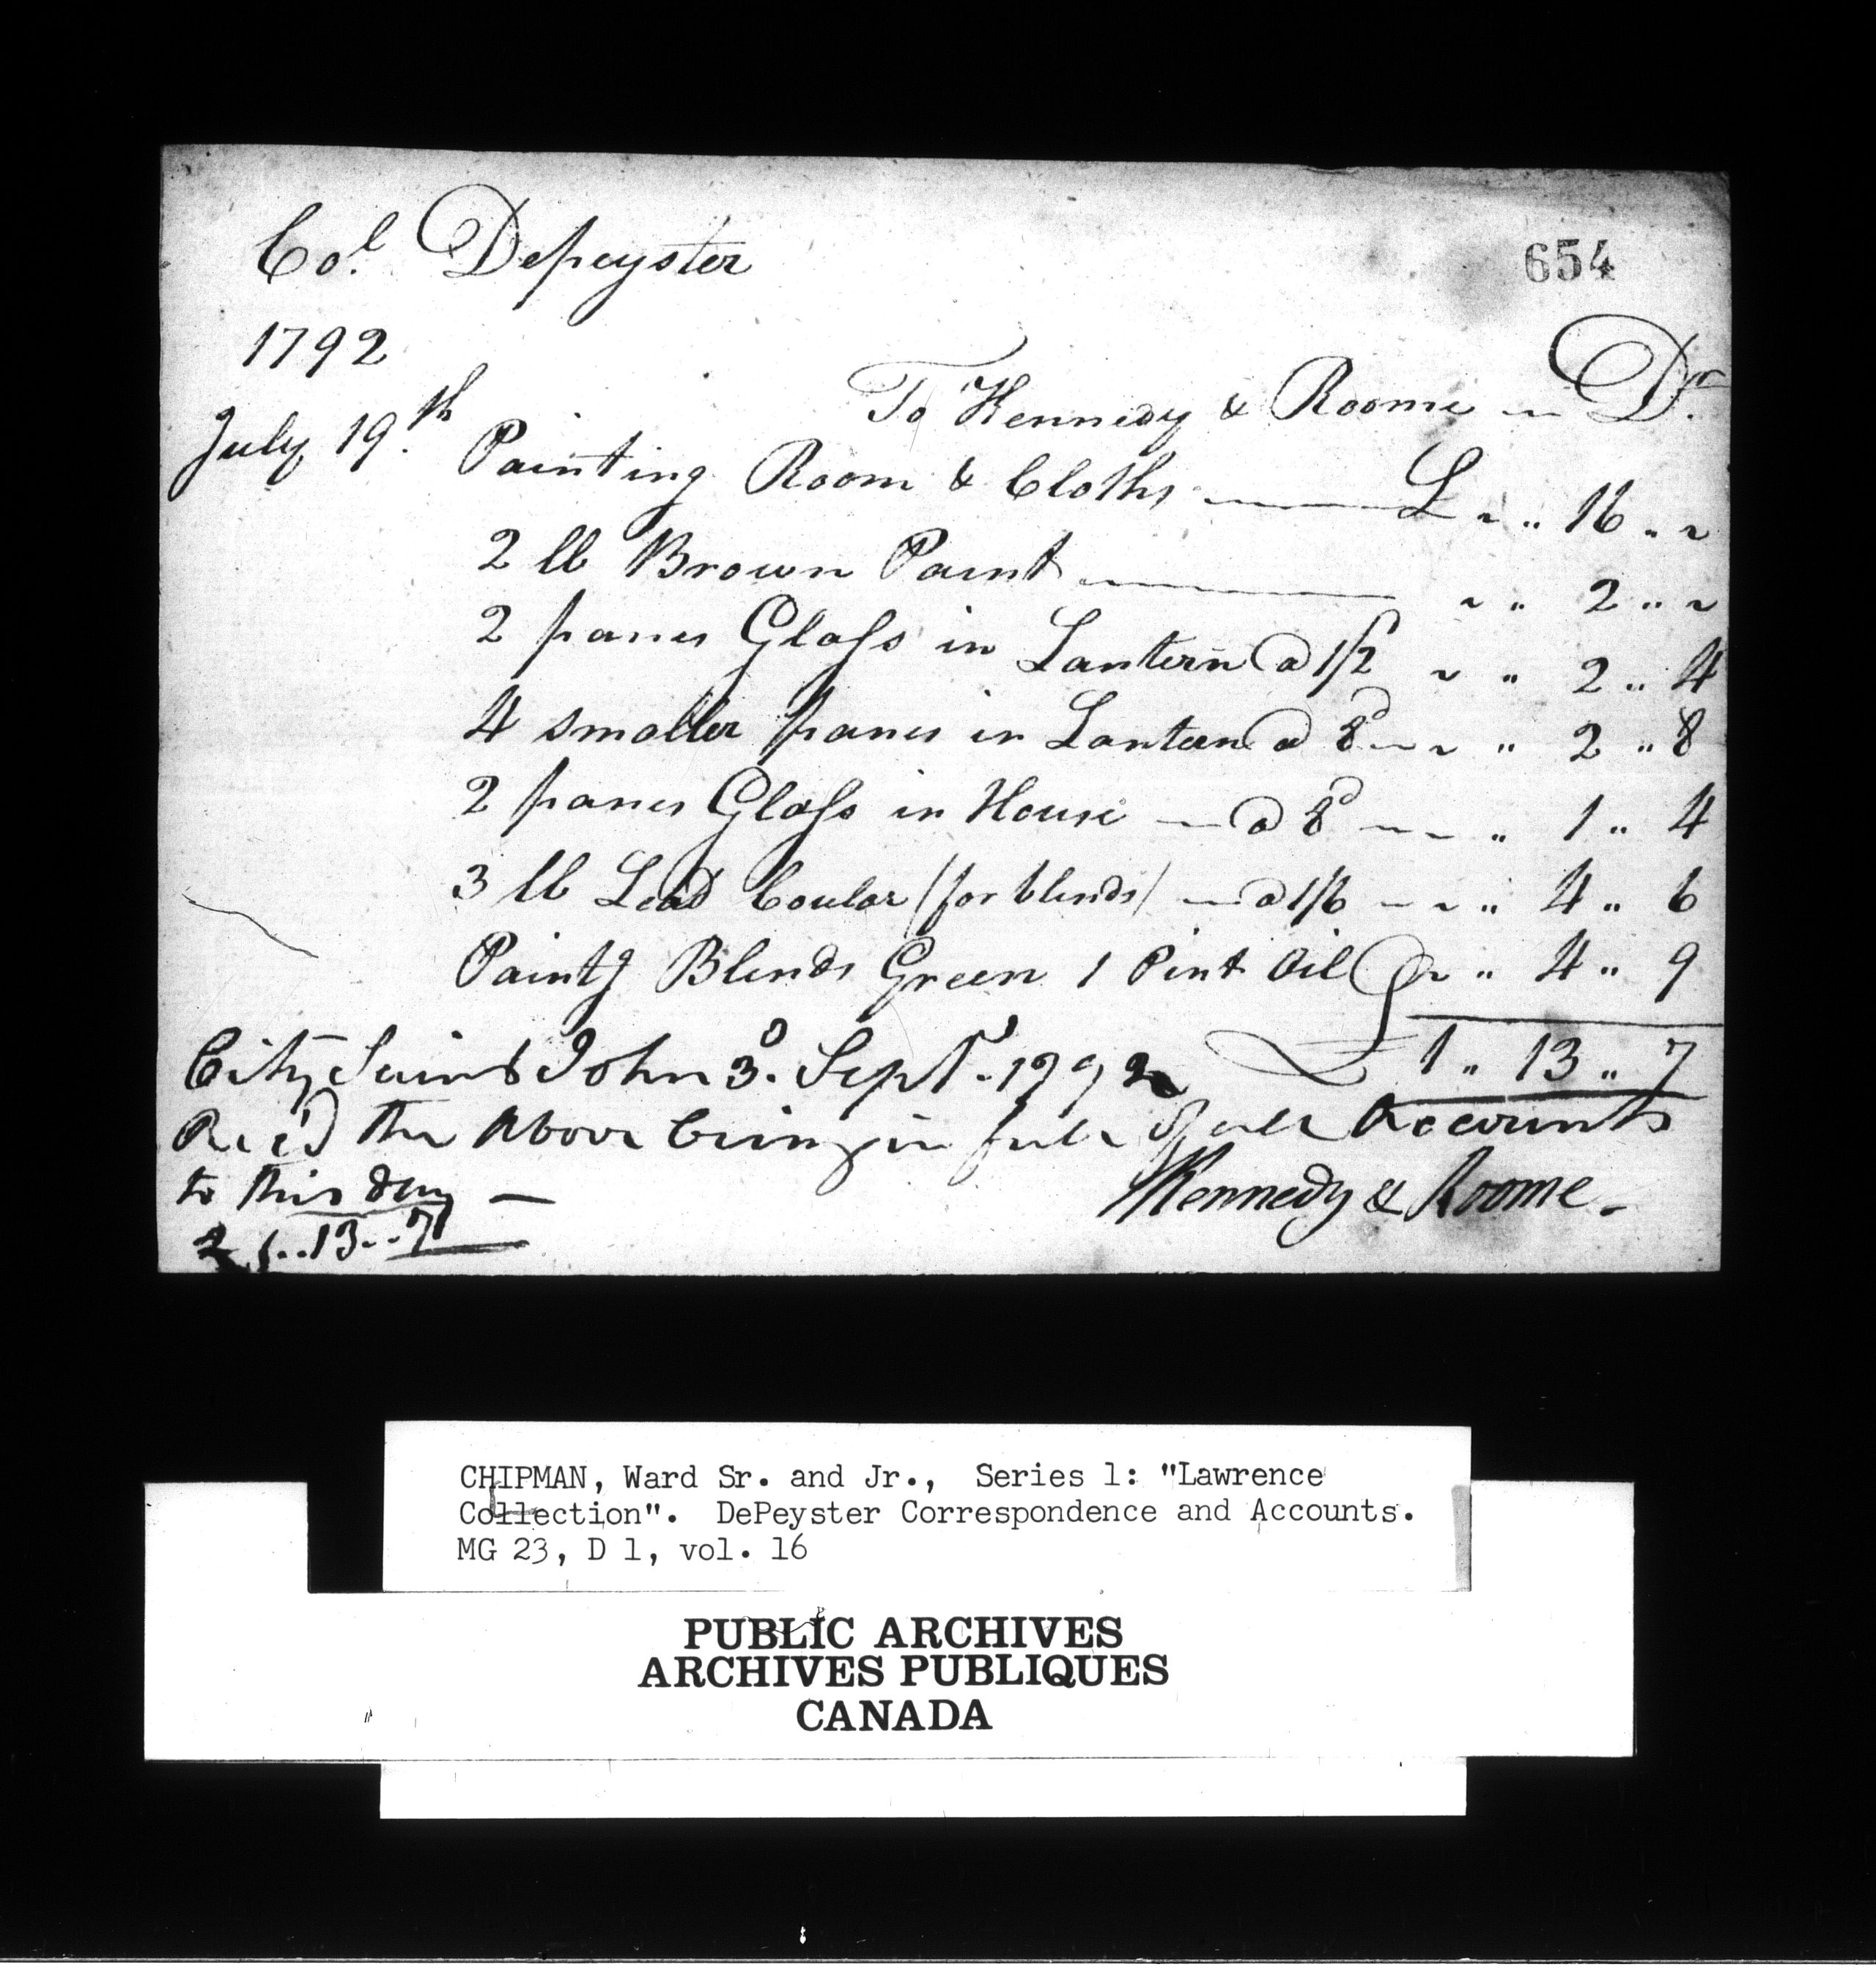 Col. Depeyster
654
1792
To Kennedy & Roome Dr.
July 19th. Painting Room & Cloths £ ~ „ 16 „ ~
2 lb Brown Paint ~ „ 2 „ ~
2 panes Glass in Lantern @ 1/2 ~ „ 2 „ 4
4 smaller panes in Lantern @ 8d ~ „ 2 „ 8
2 panes Glass in House @ 8d ~ „ 1 „ 4
3 lb Lead Coular (for blends) @ 1/6 ~ „ 4 „ 6
Paintg Blends Green 1 Pint Oil ~ „ 4 „ 9
£ 1 „ 13 „ 7
City Saint John 3d. Sept. 1792
Rec'd the Above being in full of all Accounts
to this day —
Kennedy & Roome.
£ 1..13..7
CHIPMAN, Ward Sr. and Jr., Series 1: "Lawrence
Collection". DePeyster Correspondence and Accounts.
MG 23, D 1, vol. 16
PUBLIC ARCHIVES
ARCHIVES PUBLIQUES
CANADA